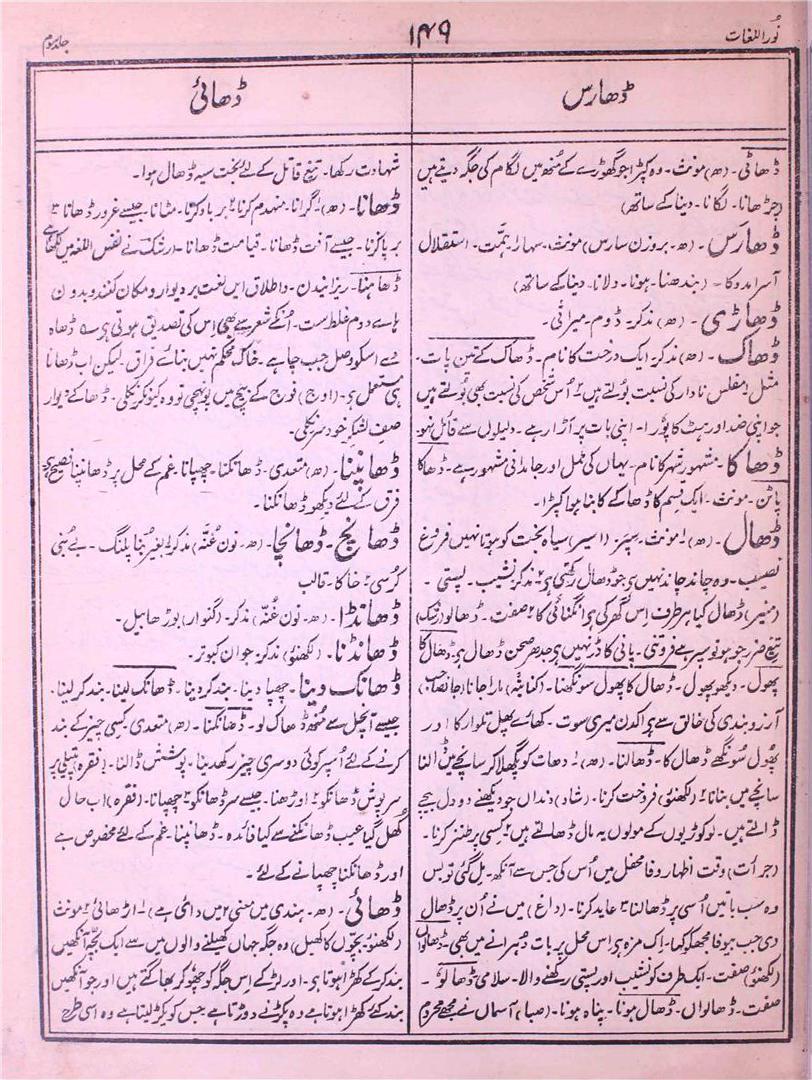 نُوراللغات
۱۴۹
جلد سوم
ڈھارس
ڈھائی
ڈھاٹی۔ (ھ) مونث۔ وہ کپڑا جو گھوڑے کے مُنھ میں لگام کی جگہ دیتے ہیں
(چڑھانا۔ لگانا۔ دینا کے ساتھ)
ڈھارس۔ (ھ۔ بروزن سارس) مونث۔ سہارا۔ ہمّت۔ استقلال
آسرا۔ مدد کا۔ (بندھنا۔ ہونا۔ دلانا۔ دینا کے ساتھ)
ڈھاڑی۔ (ھ) مذکر۔ ڈوم۔ میراثی۔
ڈھاک۔ (ھ) مذکر۔ ایک درخت کا نام۔ ڈھاک کے تین پات۔
مثل۔ مفلس نادار کی نسبت بولتے ہیں ۲ اُس شخص کی نسبت بھی بولتے ہیں
جو اپنی ضد اور ہٹ کا پُورا۔ اپنی بات پر اَڑا رہے۔ دلیلوں سے قائل نہو۔
ڈھاکا۔ مشہور شہر کا نام۔ یہاں کی ململ اور جامدانی مشہور ہے۔ ڈھاکا
پاٹن۔ مونث۔ ایک قسم کا ڈھاکے کا بنا ہوا کپڑا۔
ڈھال۔ (ھ) ۱ مونث۔ سپر۔ (اسیر) سیاہ بخت کو ہوتا نہیں فروغ
نصیب۔ وہ چاند چاند نہیں ہی جو ڈھال رکھتی ہی ۲ مذکر۔ نشیب۔ پستی۔
(منیر) ڈھال کیا ہر طرف اِس گھر کی ہی انگنائی کا ۳ صفت۔ ڈھالو (رشک)
تیغ ضرر جو ہو تو سپر ہے فروتنی۔ پانی کا ڈر نہیں ہی جدھر صحن ڈھال ہی۔ ڈھال کا
پھول۔ دیکھو پھول۔ ڈھال کا پھول سونگھنا۔ (کنایۃً) مارا جانا (جانصاحب)
آرزو بندی کی خالق سے ہی اکدن میری سوت۔ کھائے پھل تلوار کا اور
پھول سونگھے ڈھال کا۔ ڈھالنا۔ (ھ) ۱ دھات کو پگھلا کر سانچے میں ڈالنا
سانچے میں بنانا ۲ (لکھنؤ) فروخت کرنا۔ (شاد) دنداں جو دیکھنے دو دل بیچے
ڈالتے ہیں۔ لو کوڑیوں کے مولوں یہ مال ڈھالتے ہیں ۳ کسی پر طنز کرنا۔
(جرأت) وقت اظہار وفا محفل میں اُس کی جس سے آنکھ۔ مل گئی تو بس
وہ سب باتیں اُسی پر ڈھالنا ۴ عاید کرنا۔ (داغ) میں نے اُن پر ڈھال
دی جب بیوفا مجھکو کہا۔ اک مزہ ہی اس محل پر بات دُہرانے میں بھی۔ ڈھالواں
(لکھنؤ) صفت۔ ایک طرف کو نشیب اور پستی رکھنے والا۔ سلامی۔ ڈھالو۔
صفت۔ ڈھالواں۔ ڈھال ہونا۔ پناہ ہونا۔ (صبا) آسماں نے مجھے محروم
شہادت رکھا۔ تیغ قاتل کے لئے بخت سیہ ڈھال ہوا۔
ڈھانا۔ (ھ) ۱ گرانا۔ منہدم کرنا ۲ برباد کرنا۔ مٹانا۔ جیسے غرور ڈھانا ۳
برپا کرنا۔ جیسے آفت ڈھانا۔ قیامت ڈھانا۔ (رشک نے نفس اللغہ میں لکھا ہے
ڈھاہنا۔ ریزانیدن۔ و اطلاق ایں لغت بر دیوار و مکان کنند و بدون
ہاے دوم غلط ست۔ اُنکے شعر سے بھی اِس کی تصدیق ہوتی ہی ؎ ڈھاہ
دے اسکو وصل جب چاہے۔ خاک محکم نہیں بنائے فراق۔ لیکن اب ڈھانا
ہی مستعمل ہی۔ (اوج) فوج کے بیچ میں پونہچی تو وہ کیونکر نکلی۔ ڈھا کے دیوار
صفِ لشکر خود سر نکلی۔
ڈھانپنا۔ (ھ) متعدی۔ ڈھانکنا۔ چھپانا۔ غم کے محل پر ڈھانپنا فصیح ہی
فرق کے لئے دیکھو ڈھانکنا۔
ڈھانچ۔ ڈھانچا۔ (ھ۔ نون غُنّہ) مذکر ۱ بغیر بُنا پلنگ۔ بے بُنی
کرسی ۲ خاکا۔ قالب
ڈھانڈا۔ (ھ۔ نون غُنّہ) مذکر۔ (گنوار) بوڑھا بیل۔
ڈھانڈنا۔ (لکھنؤ) مذکر۔ جوان کبوتر۔
ڈھانک دینا۔ چھپا دینا۔ بند کر دینا۔ ڈھانک لینا۔ بند کر لینا۔
جیسے آنچل سے مُنھ ڈھاک لو۔ ڈھانکنا۔ (ھ) متعدی ۱ کسی چیز کے بند
کرنے کے لئے اُسپر کوئی دوسری چیز رکھدینا۔ پوشش ڈالنا۔ (فقرہ) پتیلی پر
سرپوش ڈھانکو ۲ اوڑھنا۔ جیسے سر ڈھانکو ۳ چھپانا۔ (فقرہ) اب حال
کُھل گیا عیب ڈھانکنے سے کیا فائدہ۔ ڈھانپنا۔ غم کے لئے مخصوص ہے
اور ڈھانکنا چھپانے کے لئے۔
ڈھائی۔ (ھ۔ ہندی میں معنی ۲ میں دائی ہے) ۱۔ اڑھائی ۲ مونث
(لکھنؤ۔ بچوں کا کھیل) وہ جگہ جہاں کھیلنے والوں میں سے ایک بچّہ آنکھیں
بند کر کے کھڑا ہوتا ہی۔ اور لڑکے اِس جگہ کو چھو کر بھاگتے ہیں اور جو آنکھیں
بند کئے کھڑا ہوتا ہے وہ پکڑنے دوڑتا ہے جس کو پکڑ لیتا ہے وہ اسی طرح